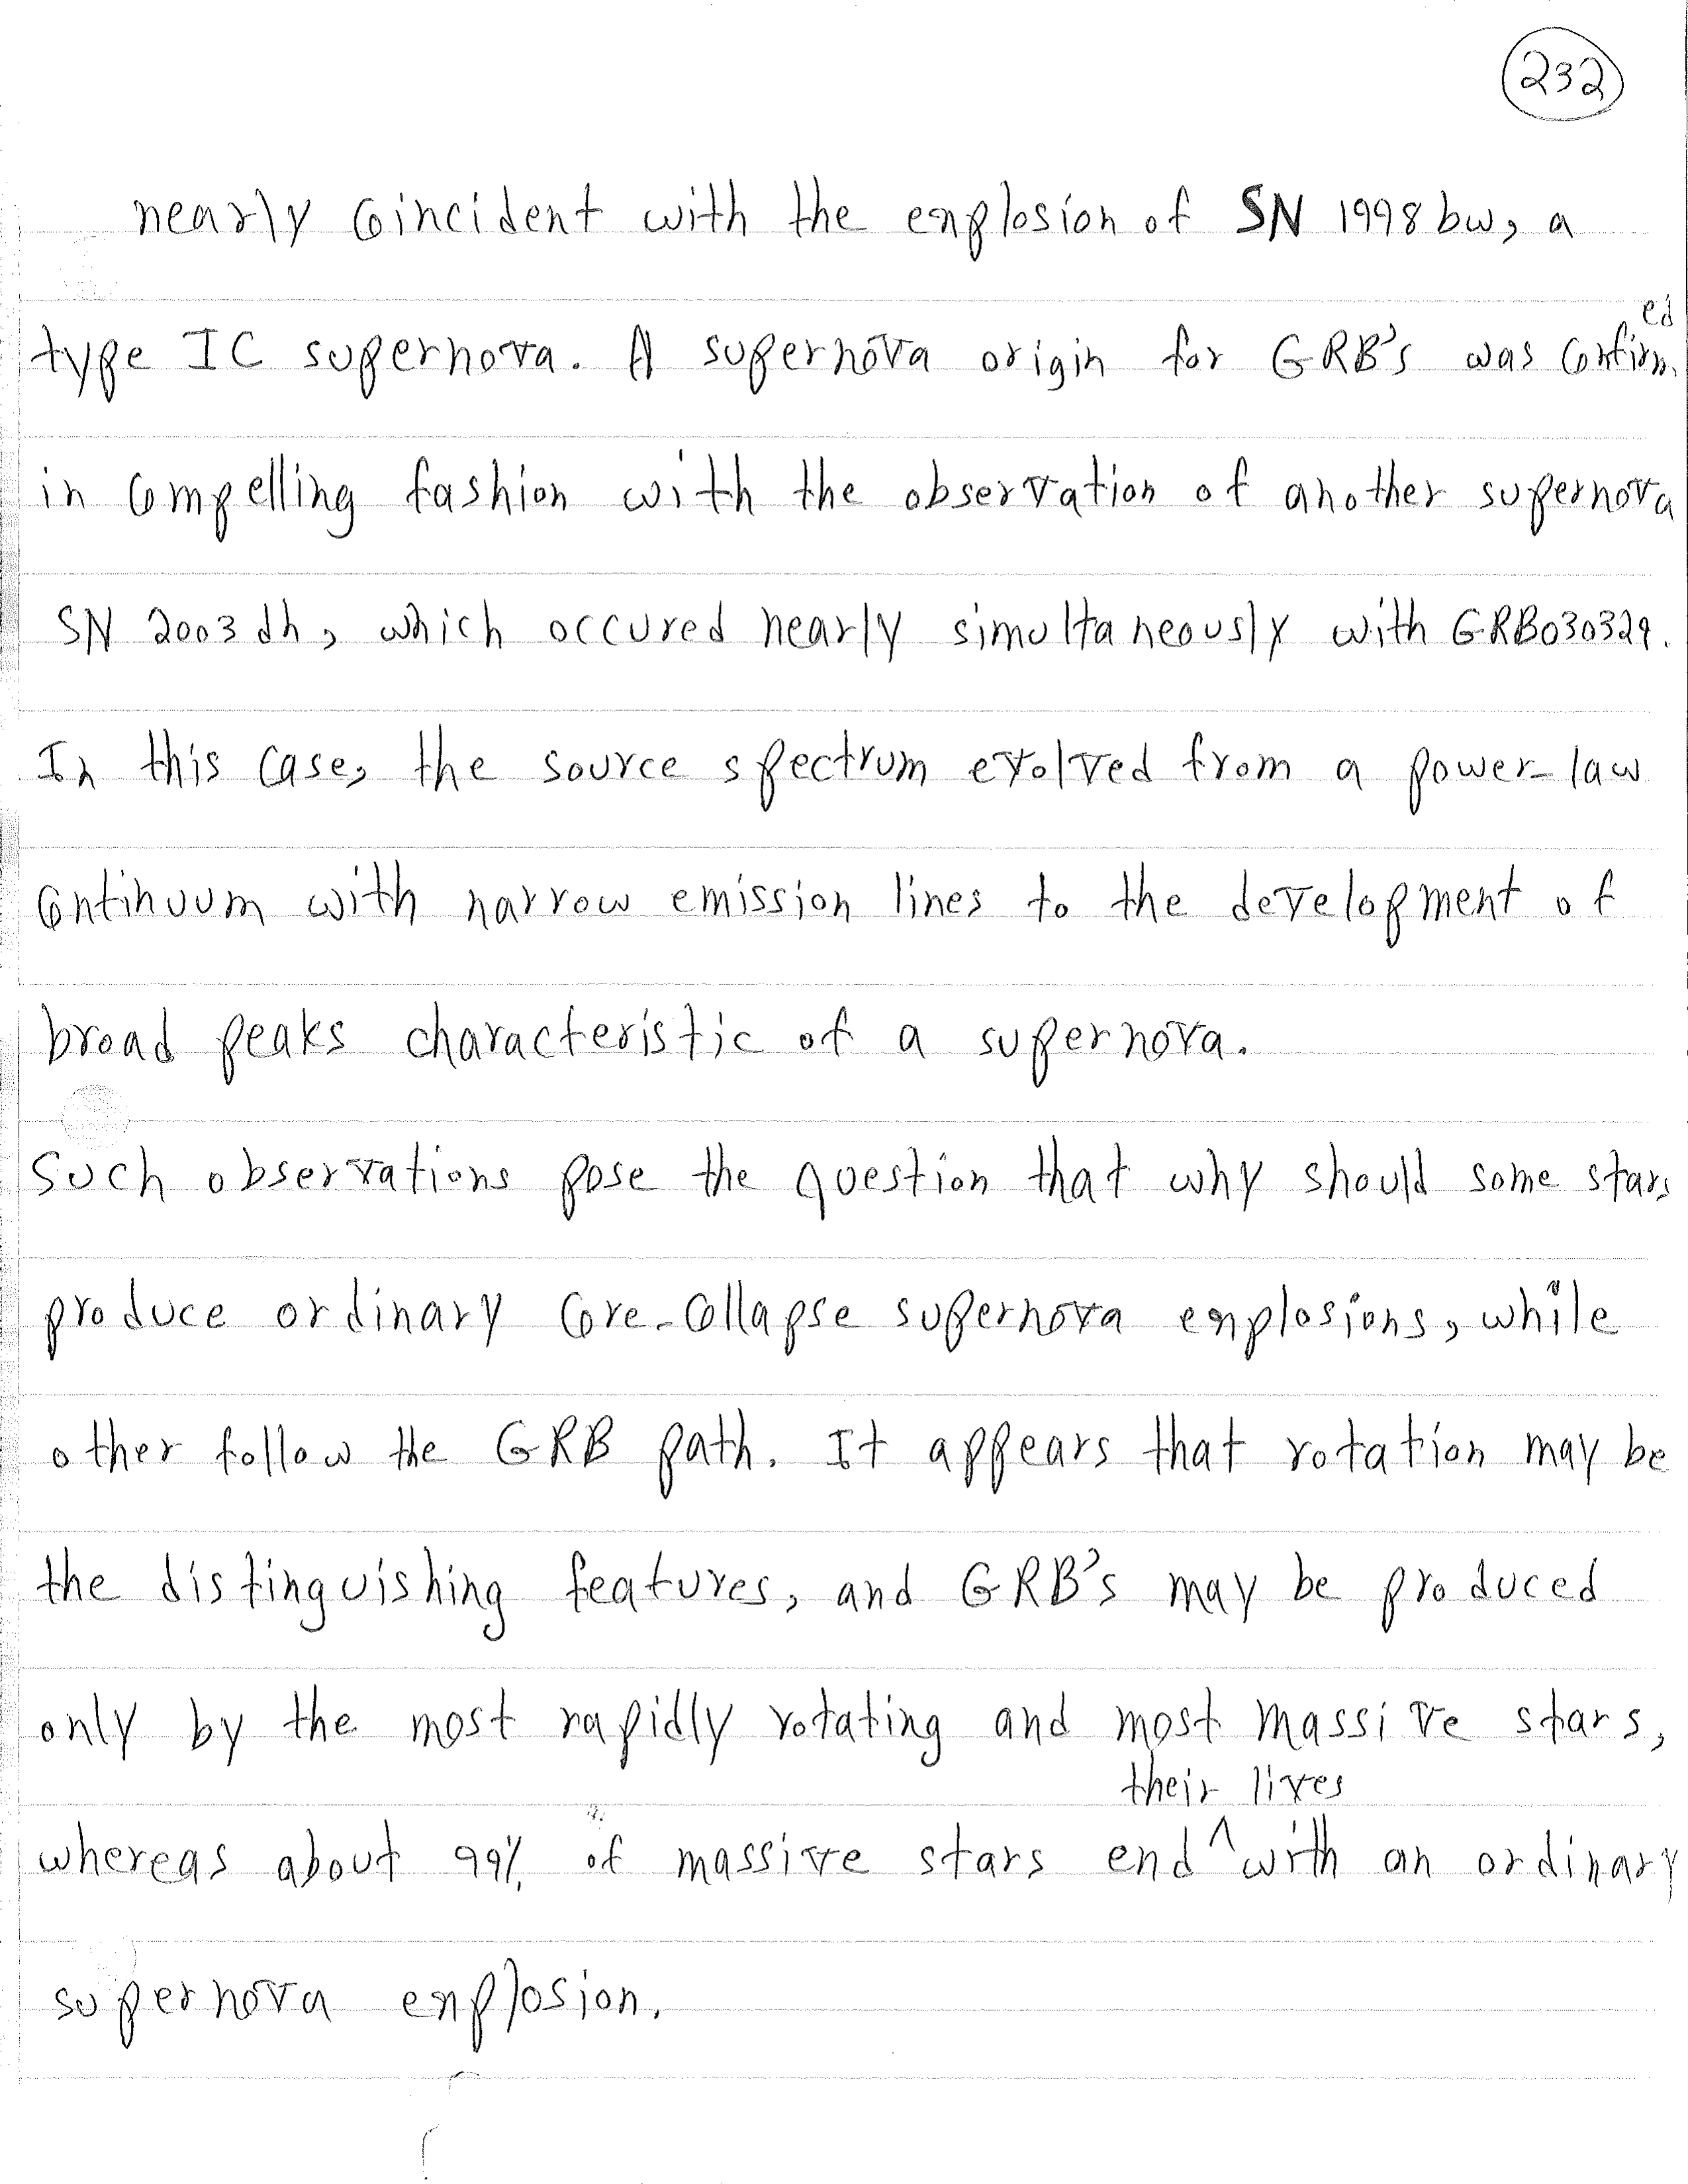 232
nearly coincident with the explosion of SN 1998 bw, a
type IC supernova. A supernova origin for GRB's was confirmed
in compelling fashion with the observation of another supernova
SN 2003 dh, which occured nearly simultaneously with GRB030329.
In this case, the source spectrum evolved from a power-law
continuum with narrow emission lines to the development of
broad peaks characteristic of a supernova.
Such observations pose the question that why should some stars
produce ordinary core-collapse supernova explosions, while
other follow the GRB path. It appears that rotation may be
the distinguishing features, and GRB's may be produced
only by the most rapidly rotating and most massive stars,
whereas about 99% of massive stars end their lives with an ordinary
supernova explosion.